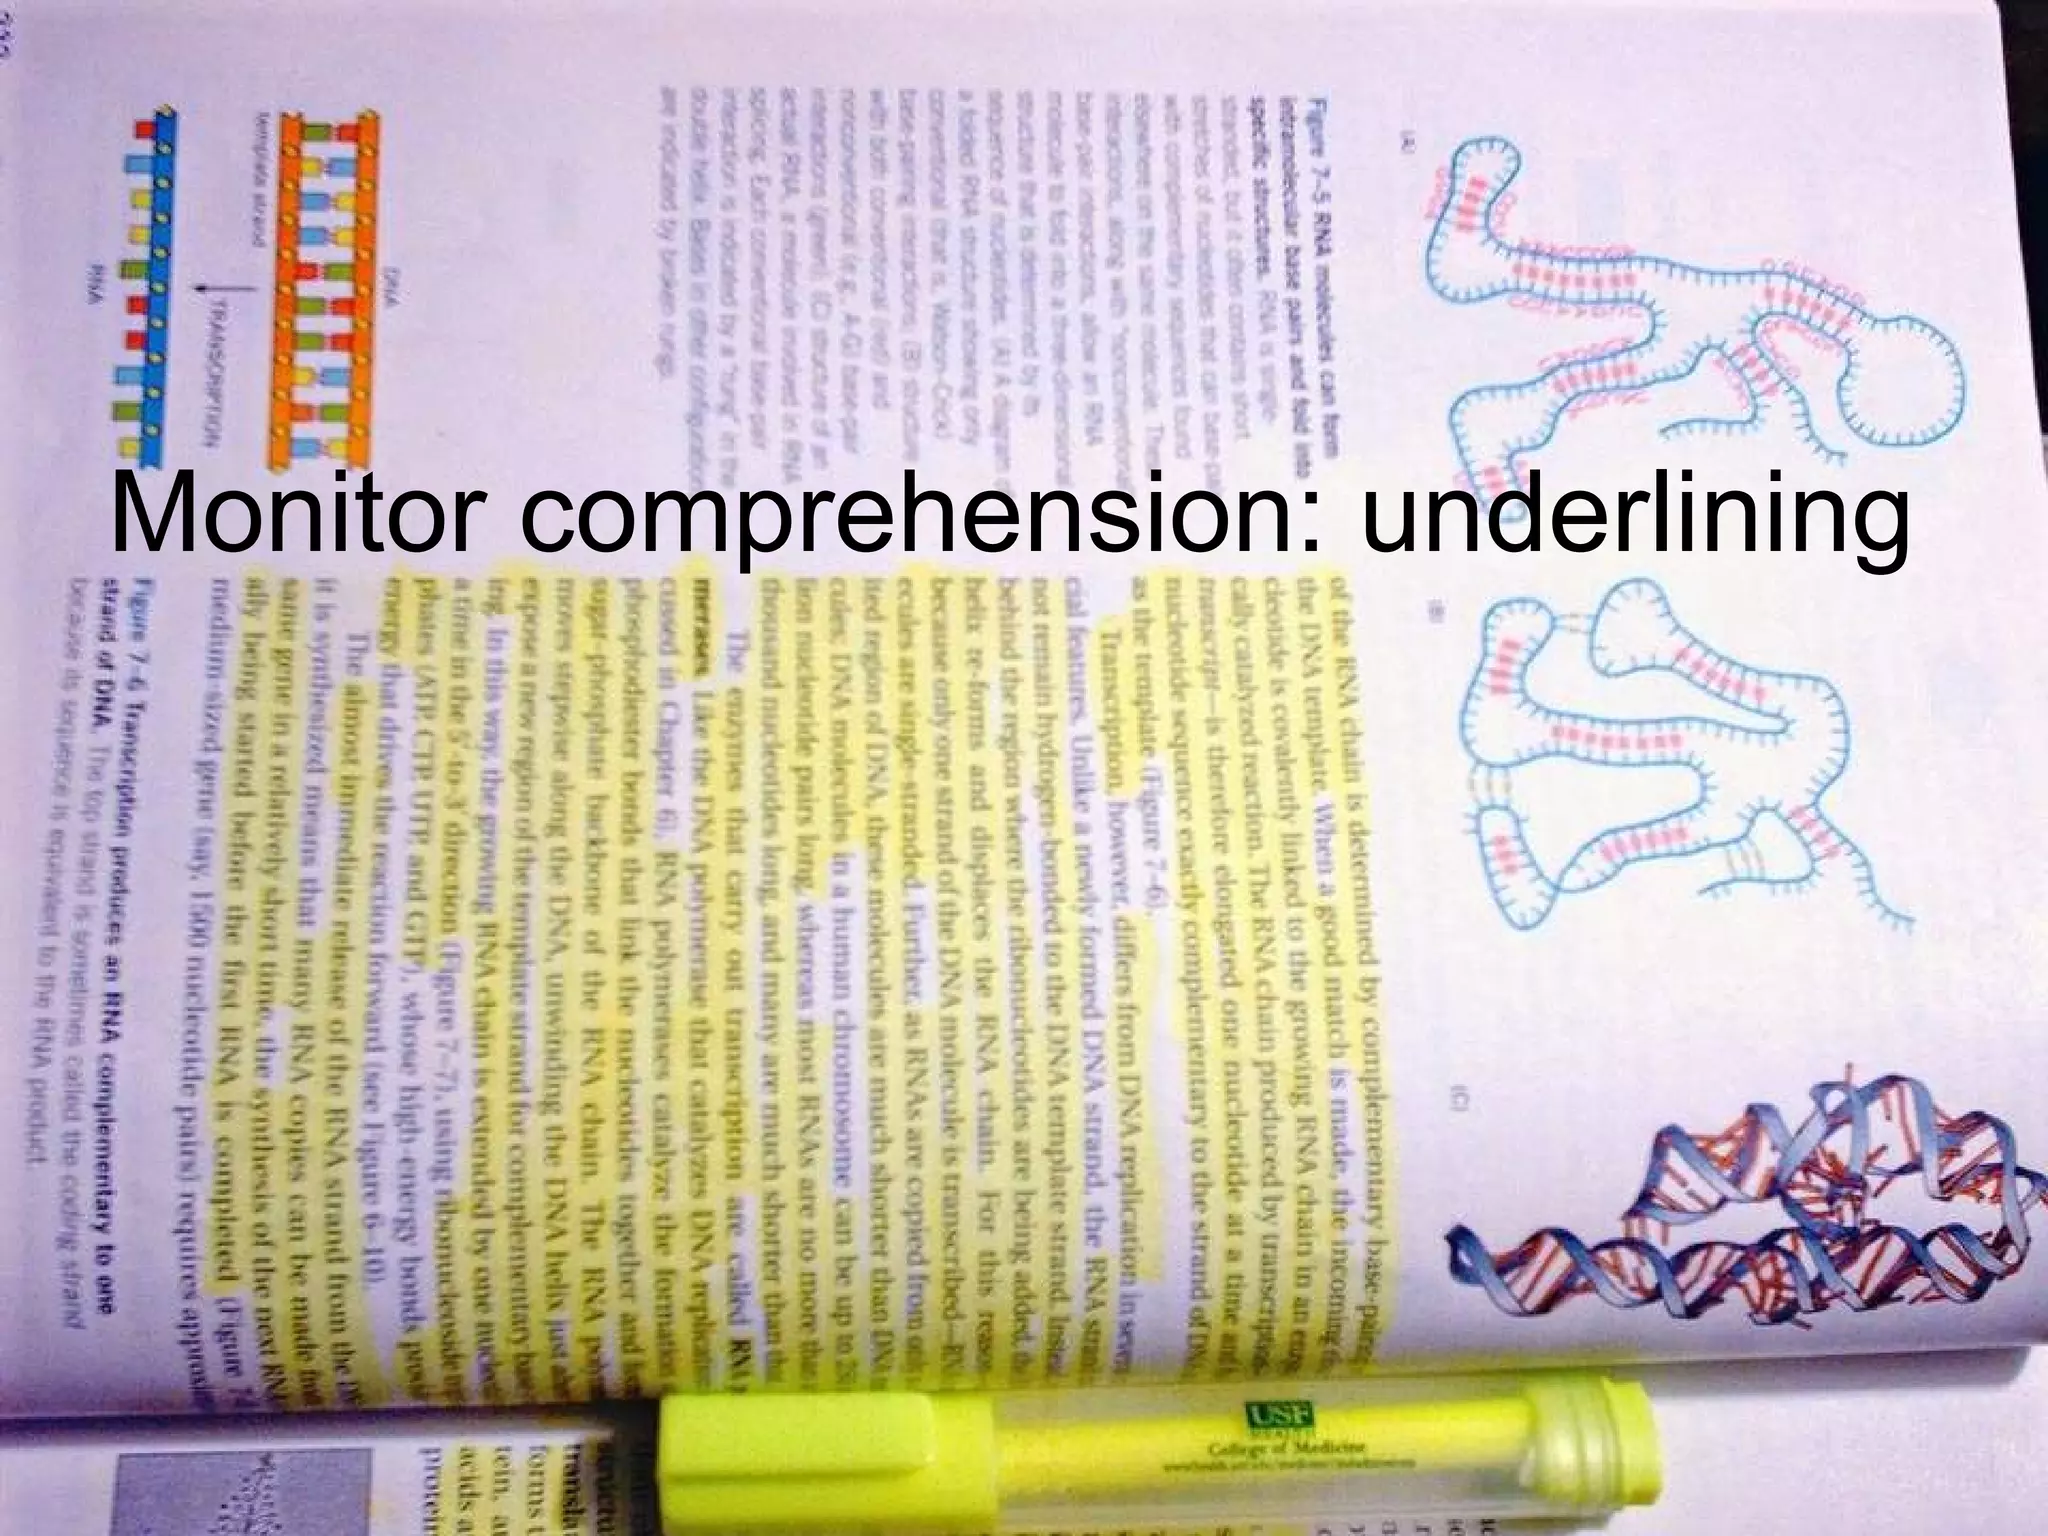 Monitor comprehension: underlining
(A)
(B)
(C)
Figure 7–5 RNA molecules can form
intramolecular base pairs and fold into
specific structures. RNA is single-
stranded, but it often contains short
stretches of nucleotides that can base-pair
with complementary sequences found
elsewhere on the same molecule. These
interactions, along with "nonconventional"
base-pair interactions, allow an RNA
molecule to fold into a three-dimensional
structure that is determined by its
sequence of nucleotides. (A) A diagram of
a folded RNA structure showing only
conventional (that is, Watson–Crick)
base-pairing interactions; (B) structure
with both conventional (red) and
nonconventional (e.g., A-G) base-pair
interactions (green); (C) structure of an
actual RNA, a molecule involved in RNA
splicing. Each conventional base-pair
interaction is indicated by a "rung" in the
double helix. Bases in other configurations
are indicated by broken rungs.
DNA
template strand
TRANSCRIPTION
RNA
of the RNA chain is determined by complementary base-pairing
the DNA template. When a good match is made, the incoming
cleotide is covalently linked to the growing RNA chain in an
cally catalyzed reaction. The RNA chain produced by transcription
transcript—is therefore elongated one nucleotide at a time and
nucleotide sequence exactly complementary to the strand of DNA
as the template (Figure 7–6).
Transcription, however, differs from DNA replication in
cial features. Unlike a newly formed DNA strand, the RNA strand
not remain hydrogen-bonded to the DNA template strand. Instead
behind the region where the ribonucleotides are being added, the
helix re-forms and displaces the RNA chain. For this reason
because only one strand of the DNA molecule is transcribed—RNA
ecules are single-stranded. Further, as RNAs are copied from only
ited region of DNA, these molecules are much shorter than DNA
cules; DNA molecules in a human chromosome can be up to
lion nucleotide pairs long, whereas most RNAs are no more than
thousand nucleotides long, and many are much shorter than that.
The enzymes that carry out transcription are called RNA
merases. Like the DNA polymerase that catalyzes DNA replication
cussed in Chapter 6), RNA polymerases catalyze the formation
phosphodiester bonds that link the nucleotides together and
sugar-phosphate backbone of the RNA chain. The RNA
moves stepwise along the DNA, unwinding the DNA helix just
expose a new region of the template strand for complementary base
ing. In this way, the growing RNA chain is extended by one
a time in the 5′-to-3′ direction (Figure 7–7), using ribonucleoside
phates (ATP, CTP, UTP, and GTP), whose high-energy bonds
energy that drives the reaction forward (see Figure 6–10).
The almost immediate release of the RNA strand from the
it is synthesized means that many RNA copies can be made from
same gene in a relatively short time, the synthesis of the next RNA
ally being started before the first RNA is completed (Figure
medium-sized gene (say, 1500 nucleotide pairs) requires
Figure 7–6 Transcription produces an RNA complementary to one
strand of DNA. The top strand is sometimes called the coding strand
because its sequence is equivalent to the RNA product.
USF
HEALTH
College of Medicine